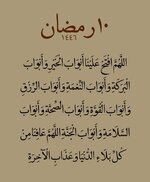 ١٠ رمضان
١٤٤٦
اللَّهُمَّ افْتَحْ عَلَيْنَا أَبْوَابَ الْخَيْرِ وَأَبْوَابَ
الْبَرَكَةِ وَأَبْوَابَ النِّعْمَةِ وَأَبْوَابَ الرِّزْقِ
وَأَبْوَابَ الْقُوَّةِ وَأَبْوَابَ الصِّحَّةِ وَأَبْوَابَ
السَّلَامَةِ وَأَبْوَابَ الْجَنَّةِ اللَّهُمَّ عَافِنَا مِنْ
كُلِّ بَلَاءِ الدُّنْيَا وَعَذَابِ الْآخِرَةِ